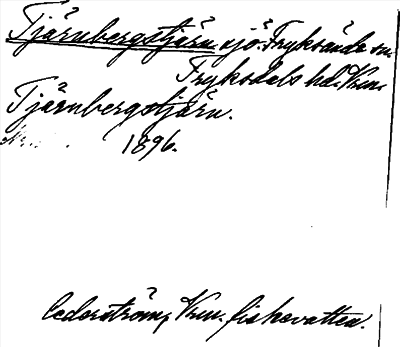 Tjärnbergstjärn sjö. Fryksände sn.
Fryksdals hd. Vrm.
Tjärnbergstjärn.
1896.
Cederström, Vrm. fiskevatten.